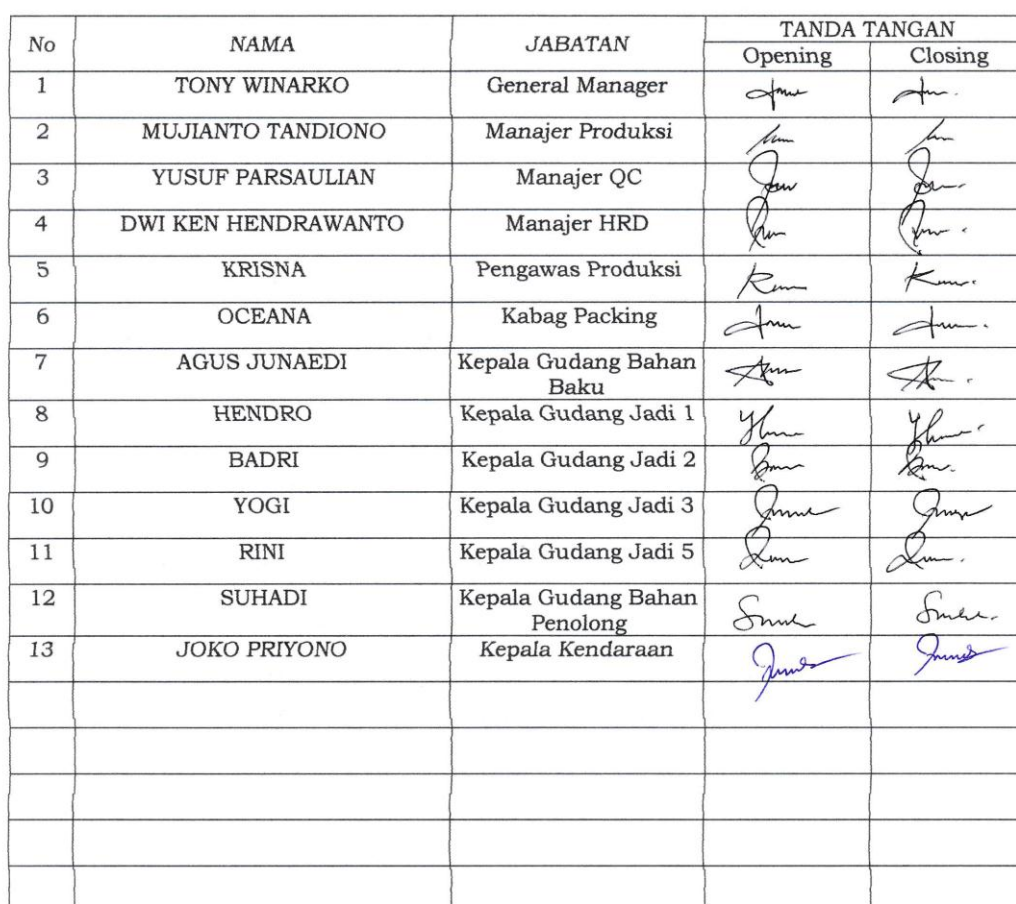 No NAMA JABATAN TANDA TANGAN
Opening Closing
1 TONY WINARKO General Manager
2 MUJIANTO TANDIONO Manajer Produksi
3 YUSUF PARSAULIAN Manajer QC
4 DWI KEN HENDRAWANTO Manajer HRD
5 KRISNA Pengawas Produksi
6 OCEANA Kabag Packing
7 AGUS JUNAEDI Kepala Gudang Bahan
Baku
8 HENDRO Kepala Gudang Jadi 1
9 BADRI Kepala Gudang Jadi 2
10 YOGI Kepala Gudang Jadi 3
11 RINI Kepala Gudang Jadi 5
12 SUHADI Kepala Gudang Bahan
Penolong
13 JOKO PRIYONO Kepala Kendaraan